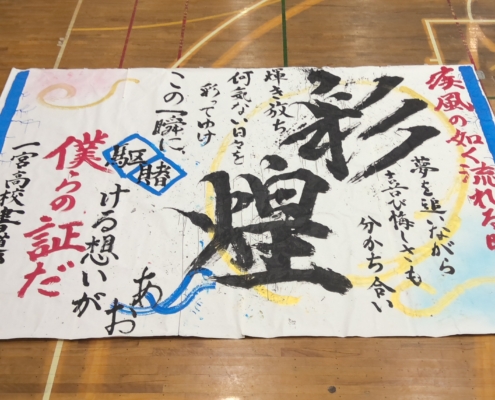 疾風の如く流れた日
夢を追いながら
喜び悔しさも
分かち合い
彩煌
輝き放ち
何気ない日々を
彩ってゆけ
この一瞬に、
駆賭
ける想いが
あお
僕らの証だ
一宮高校書道